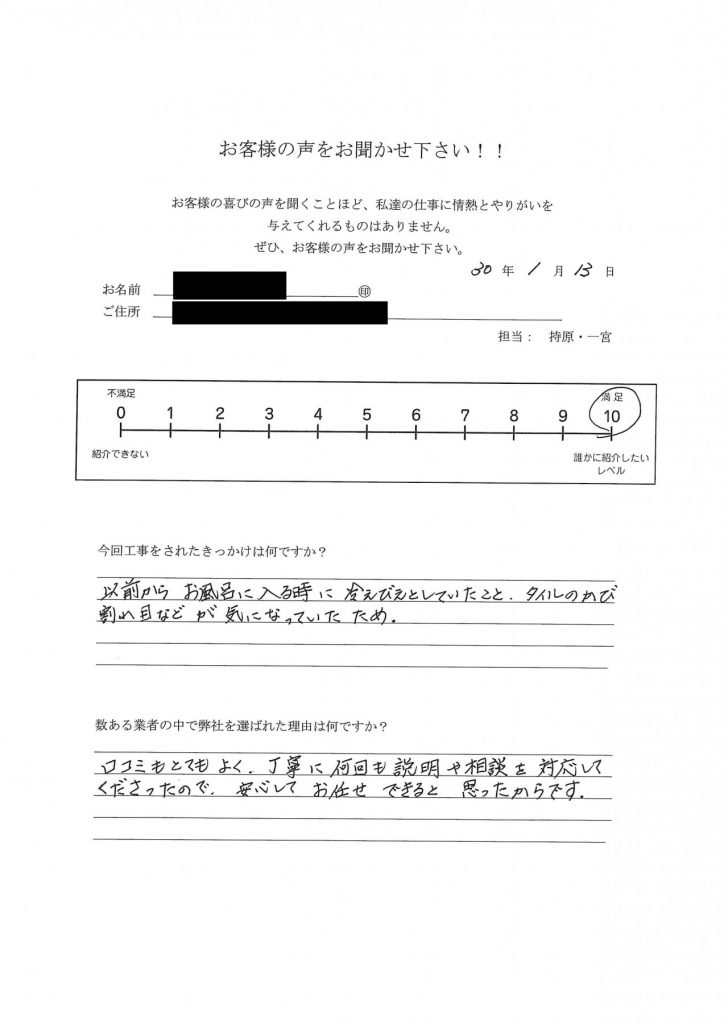 お客様の声をお聞かせ下さい！！
お客様の喜びの声を聞くことほど、私達の仕事に情熱とやりがいを
与えてくれるものはありません。
ぜひ、お客様の声をお聞かせ下さい。
30 年 1 月 13 日
お名前 ㊞
ご住所
担当： 持原・一宮
不満足 満足
0 1 2 3 4 5 6 7 8 9 10
紹介できない 誰かに紹介したい
レベル
今回工事をされたきっかけは何ですか？
以前から お風呂に 入る時に 冷えびえとしていたこと、タイルのカビ
割れ目など が 気になっていた ため。
数ある業者の中で弊社を選ばれた理由は何ですか？
口コミもとても よく、丁寧に 何回も 説明や相談を 対応して
くださったので、安心して お任せ できると 思ったからです。